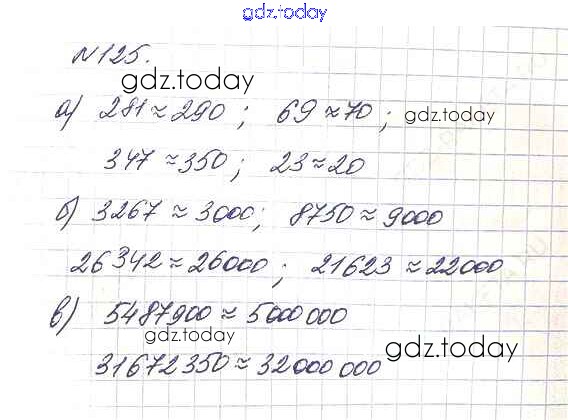 gdz.today
№125.
gdz.today
а) 281 ≈ 290 ; 69 ≈ 70 ; gdz.today
347 ≈ 350; 23 ≈ 20
б) 3267 ≈ 3000; 8750 ≈ 9000
26342 ≈ 26000 ; 21623 ≈ 22000
в) 5487900 ≈ 5000 000
gdz.today
31672350 ≈ 32000 000
gdz.today